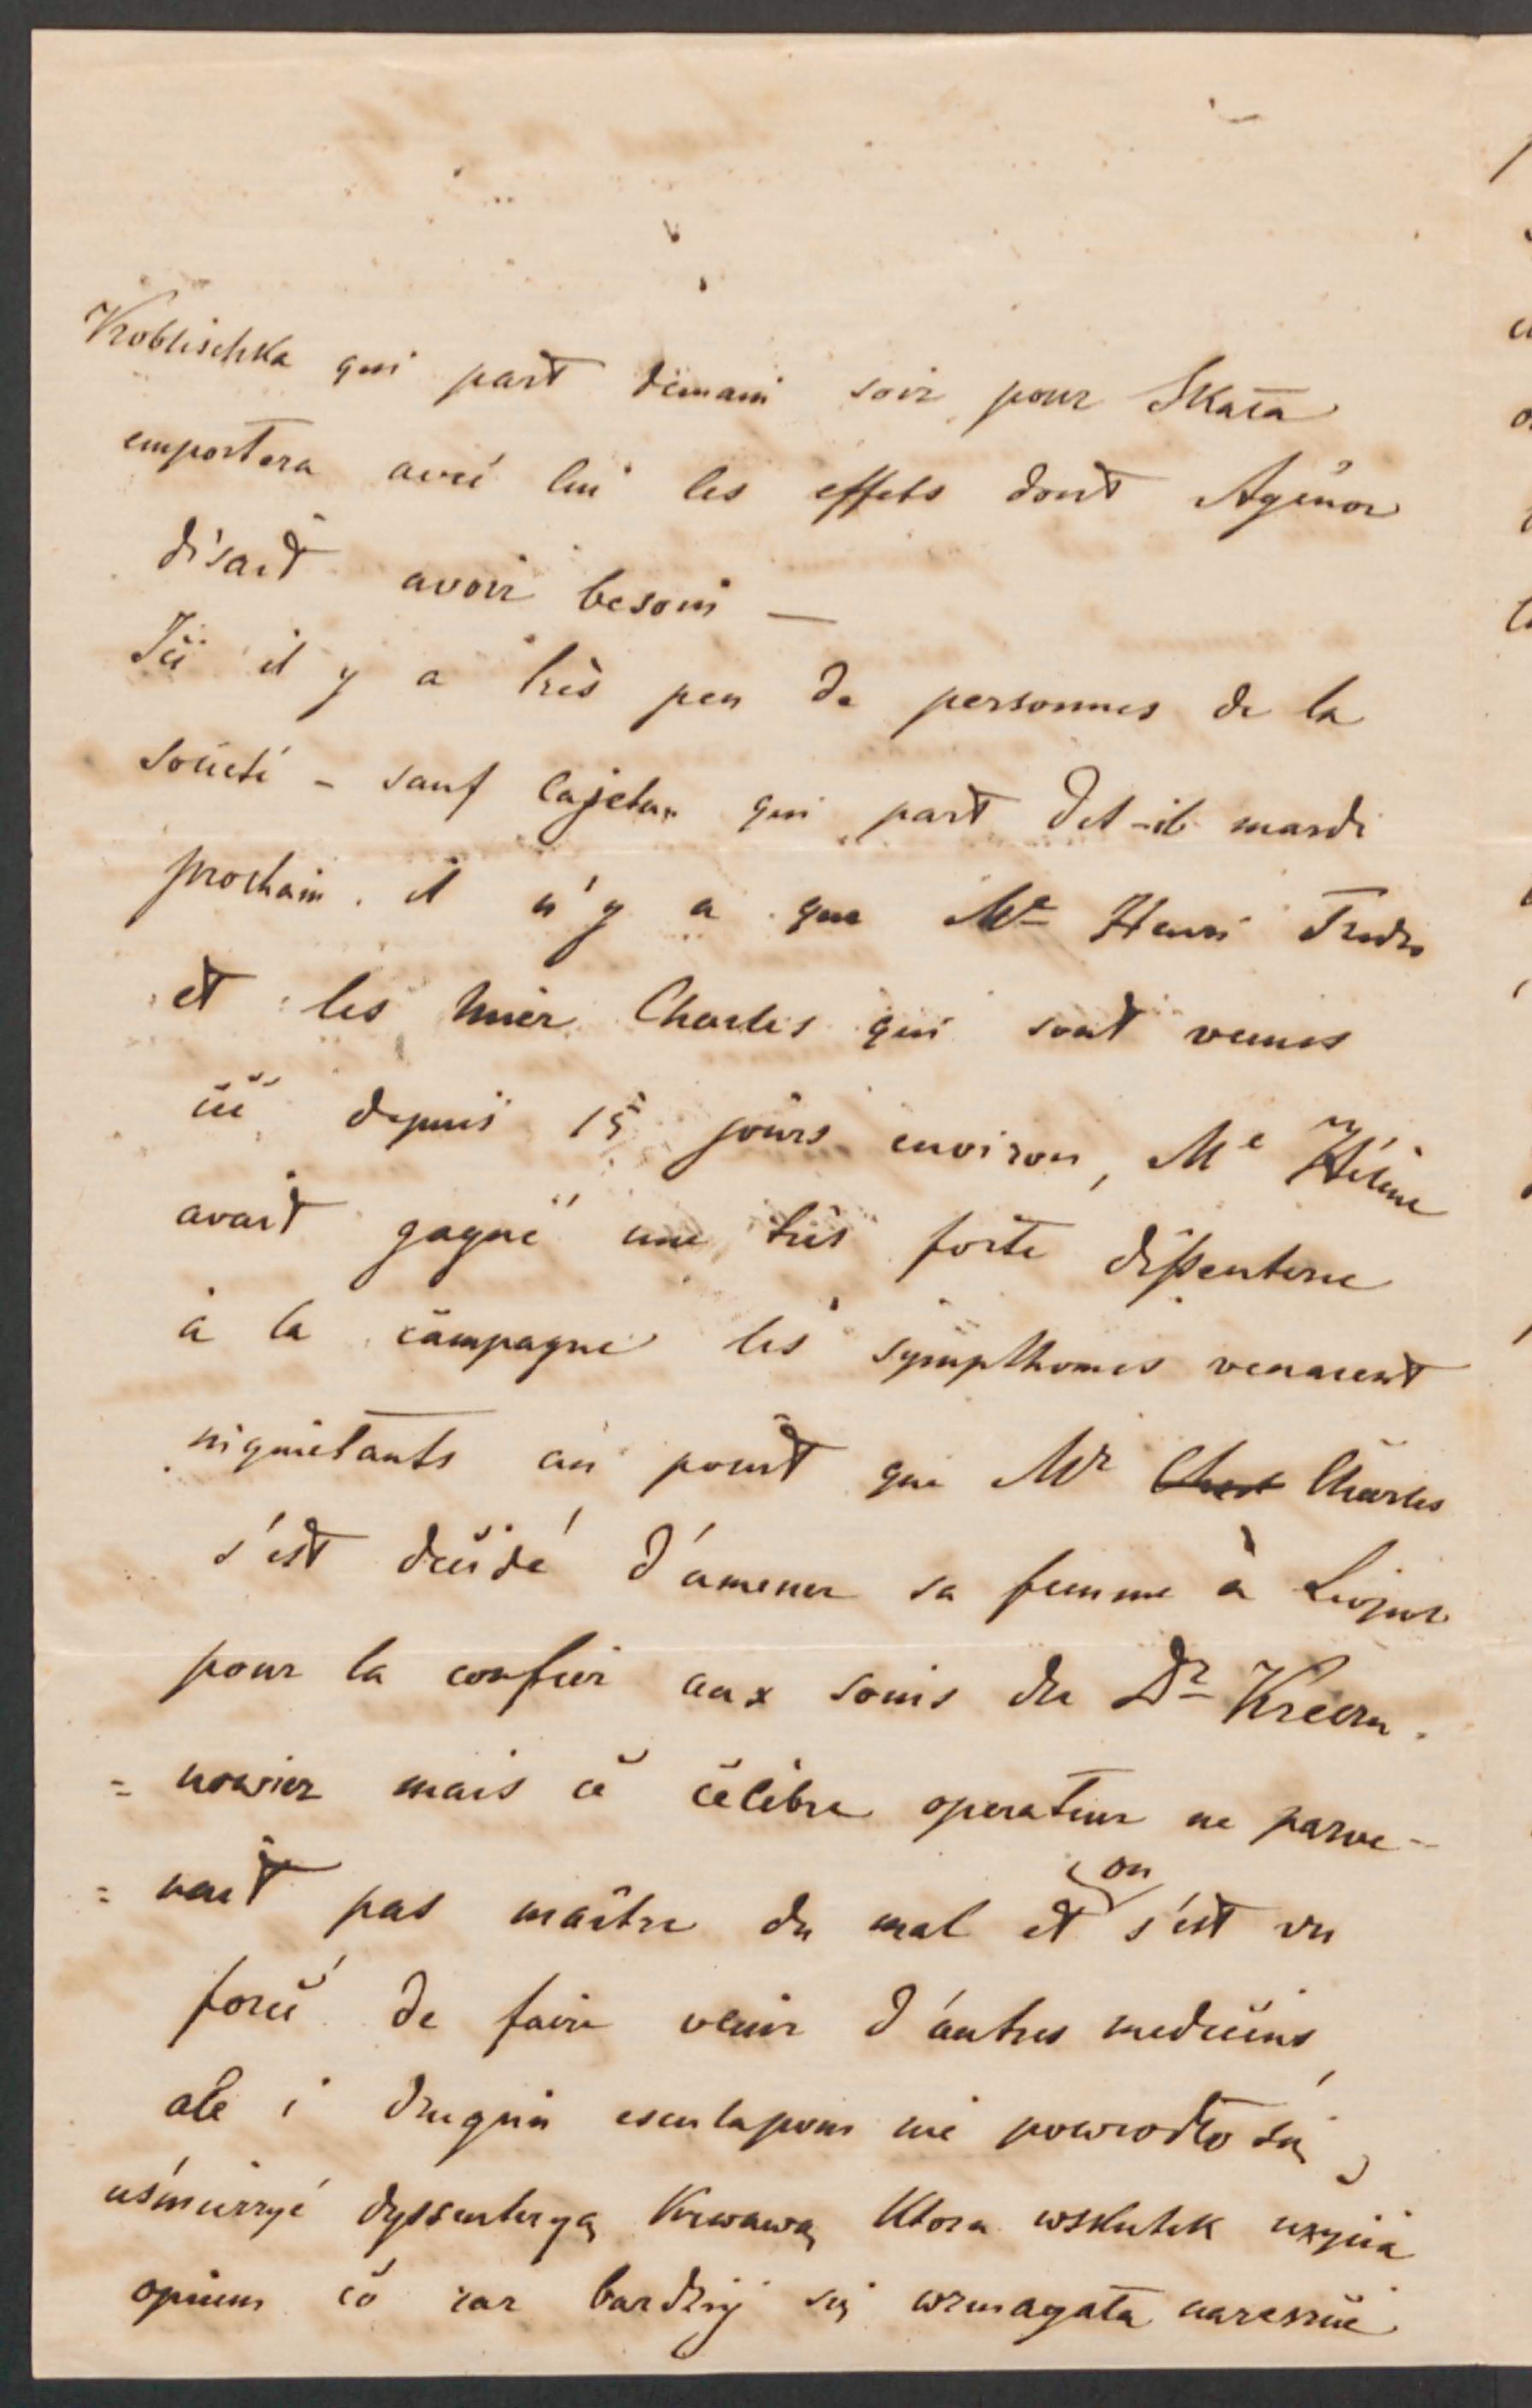 Kroblischka qui part demain soir pour Skała
emportera avec lui les effets dont Agénor
disait avoir besoin —
Ici il y a très peu de personnes de la
société – sauf Cajetan qui part dit-il mardi
prochain. il n'y a que Me Henri Fredro
et les Mier Charles qui sont venus
ici depuis 15 jours environ, Me Hélène
avait gagné une très forte dissenterie
à la campagne les sympthomes venaient
inquietants au point que Mr Charles
s'est décidé d'amener sa femme à Léopol
pour la confier aux soins du Dr
= mais ce célèbre operateur ne parve-
= nait pas maître du mal et on s'est vu
forcé de faire venir d'autres medecins,
ale i drugim esculapom nie powiodło się
uśmierzyć dyssenteryą krwawą ktora wskutek użycia
opium co raz bardziej się wzmagała nareszcie